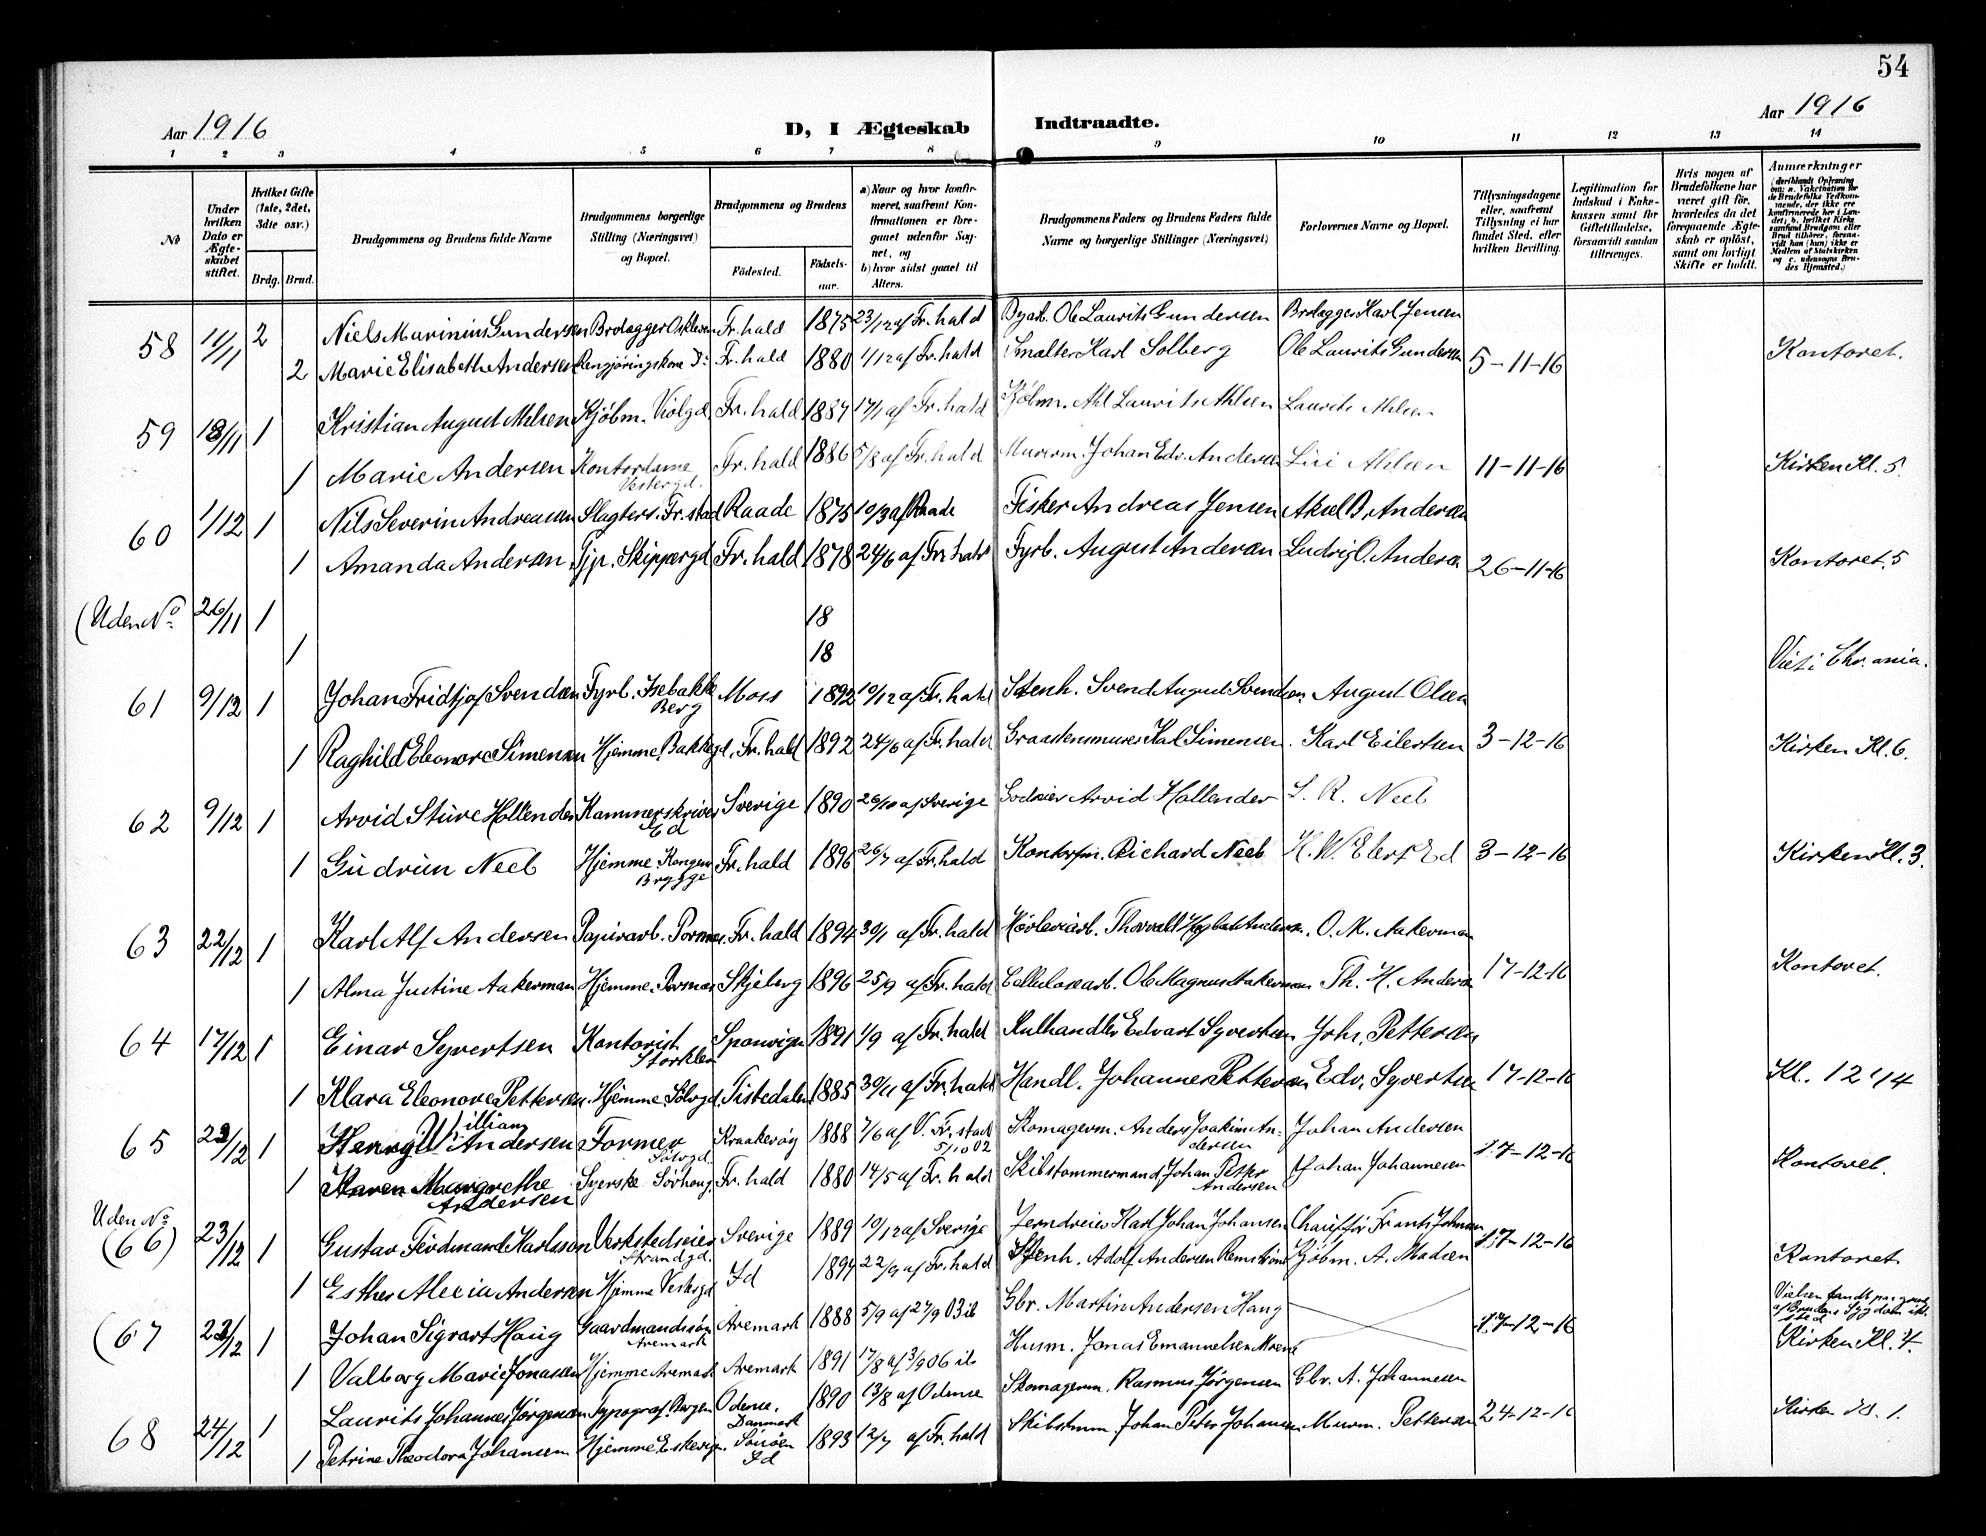 54
Aar 1916
D, I Ægteskab Indtraadte.
Aar 1916
1 2 3 4 5 6 7 8 9 10 11 12 13 14
No
Under hvilken Dato er Ægteskabet stiftet.
Hvilket Gifte (1ste, 2det, 3die osv.)
Brdg. Brud.
Brudgommens og Brudens fulde Navne
Brudgommens borgerlige Stilling (Næringsvei) og Bopæl.
Brudgommens og Brudens
Födested.
Födsels-aar.
a) Naar og hvor konfirmeret, saafremt Konfirmationen er foregaaet udenfor Sognet, og
b) hvor sidst gaaet til Alters.
Brudgommens Faders og Brudens Faders fulde Navne og borgerlige Stillinger (Næringsvei)
Forlovernes Navne og Bopæl.
Tillysningsdagene eller, saafremt Tillysning ei har fundet Sted, efter hvilken Bevilling.
Legitimation for Indskud i Enkekassen samt for Giftetilladelse, forsaavidt saadan tiltrænges.
Hvis nogen af Brudefolkene har været gift før, hvorledes da det foregaaende Ægteskab er oplöst, samt om lovligt Skifte er holdt.
Anmærkninger
58 11/11 2 Niels Marinius Gundersen Brolægger Fr.hald 1875 Fr.hald Ole Laurits Gundersen Brolægger Karl Jensen
2 Marie Elisabethe Andersen Rengjøringskone Fr.hald 1880 1/12 af Fr.hald Smalter Karl Solberg Ole Laurits Gundersen 5-11-16 Kontoret.
59 18/11 1 Kristian August Ahlsen Kjøbm. Violgd. Fr.hald 1887 17/1 af Fr.hald Kjøbm. Laurits Ahlsen Laurits Ahlsen
1 Marie Andersen Kontordame Vestergd. Fr.hald 1886 5/8 af Fr.hald Murerm. Johan Edv. Andersen Ahlsen 11-11-16 Kirken Kl. 5
60 1/12 1 Nils Severin Andreasen Slagters. Fr.stad Raade 1875 10/3 af Raade Fisker Andreas Jensen Aksel B. Andersen
1 Amanda Andersen Tjp. Skippergd. Fr.hald 1878 24/6 af Fr.hald Fyrb. August Andersen Ludvig O. Andersen 26-11-16 Kontoret. 5
(Uden No 26/11 1 18
1 18 Viet i Chr.ania.
61 9/12 1 Johan Fridtjof Svendsen Fyrb. Isebakke Berg Moss 1892 10/12 af Fr.hald Stenh. Svend August Svendsen August Olsen
1 Raghild Eleonore Simensen Hjemme, Bakkegd. Fr.hald 1892 24/6 af Fr.hald Karl Simensen. Karl Eilertsen 3-12-16 Kirken Kl. 6.
62 9/12 1 Arvid Sture Hollender Kammerskriver Ed Sverige 1890 26/10 af Sverige Godseier Arvid Hollender L. R. Neeb
1 Gudrun Neeb Hjemme Kongens Brygge Fr.hald 1896 26/7 af Fr.hald Richard Neeb H. W. Ed 3-12-16 Kirken Kl. 3.
63 22/12 1 Karl Alf Andersen Papirarb. Porsnes. Fr.hald 1894 30/1 af Fr.hald Høvleriarb. Thorvald Andersen. O. M. Aakerman
1 Alma Justine Aakerman Hjemme. Porsnes Skjeberg 1896 25/9 af Fr.hald Cellulosearb. Ole Magnus Aakerman Th. H. Andersen 17-12-16 Kontoret.
64 17/12 1 Einar Syvertsen Kontorist Storklev Sponvigen 1891 1/9 af Fr.hald Kulhandler Edvart Syvertsen Johs. Pettersen
1 Klara Eleonora Pettersen. Hjemme, Sølvgd. Tistedalen 1885 30/11 af Fr.hald Handl. Johannes Pettersen Edv. Syvertsen 17-12-16 Kl. 12 1/4
65 23/12 1 Henry William Andersen Former Sølvgd. Kraakerøy 1888 7/6 af V. Fr.stad 5/10 02 Skomagerm. Anders Joakim Andersen Johan Andersen
1 Karen Margrethe Andersen Syerske Fr.hald 1880 14/5 af Fr.hald Skibstømmermand Johan Peter Andersen Johan Johannesen 17-12-16 Kontoret.
Uden No
(66) 23/12 1 Gustav Ferdinand Karlsson Verkstedseier Strandgd. Sverige 1889 10/12 af Sverige Jerndreier Karl Johan Johansen Chauffør Frants Johnsen
1 Esther Alexia Andersen Hjemme Vestergd Id 1894 22/9 af Fr.hald Stenh. Adolf Andersen Kjøbm. A. Madsen 17-12-16 Kontoret
(67 23/12 1 Johan Sigvart Haug Gaardmandssøn Aremark Aremark 1888 5/9 af 27/9 03 ib Gbr. Martin Andersen Haug
1 Valborg Marie Jonassen Hjemme Aremark Aremark 1891 17/8 af 3/9 06 ib Husm. Jonas Emanuelsen 17-12-16 Vielsen fandt paa grund af Brudens Sygdom ikke sted Kirken Kl. 4.
68 24/12 1 Laurits Johannes Jørgensen Typograf. Bergen Odense, Danmark 1890 13/8 af Odense Skomagerm. Rasmus Jørgensen Gbr. A. Johannesen
1 Petrine Theodora Johansen Hjemme Eskevigen. Id 1893 12/7 af Fr.hald Skibstmm. Johan Peter Johansen Murm. Pettersen 24-12-16 Kirken Kl. 1.